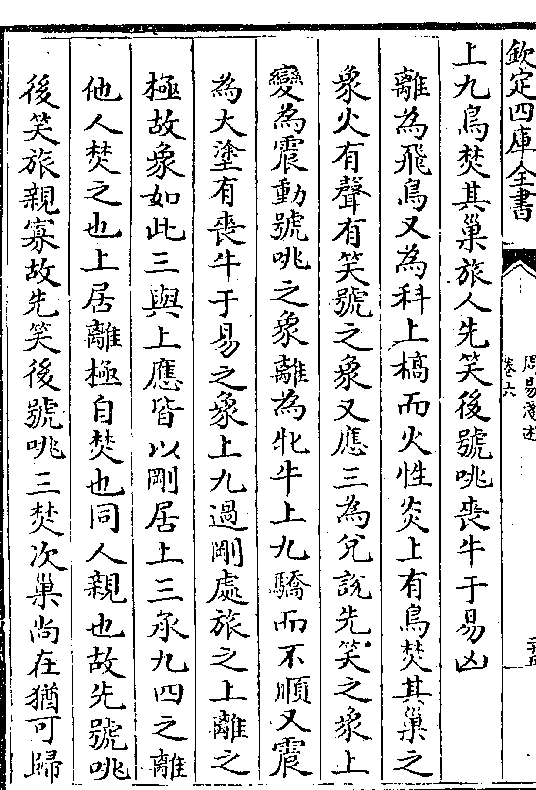 欽定四庫全書
周易淺述
卷六
上九鳥焚其巢旅人先笑後號咷喪牛于易凶
離為飛鳥又為科上槁而火性炎上有鳥焚其巢之
象火有聲有笑號之象又應三為兌說先笑之象上
變為震動號咷之象離為牝牛上九驕而不順又震
為大塗有喪牛于易之象上九過剛處旅之上離之
極故象如此三與上應皆以剛居上三承九四之離
他人焚之也上居離極自焚也同人親也故先號咷
後笑旅親寡故先笑後號咷三焚次巢尚在猶可歸